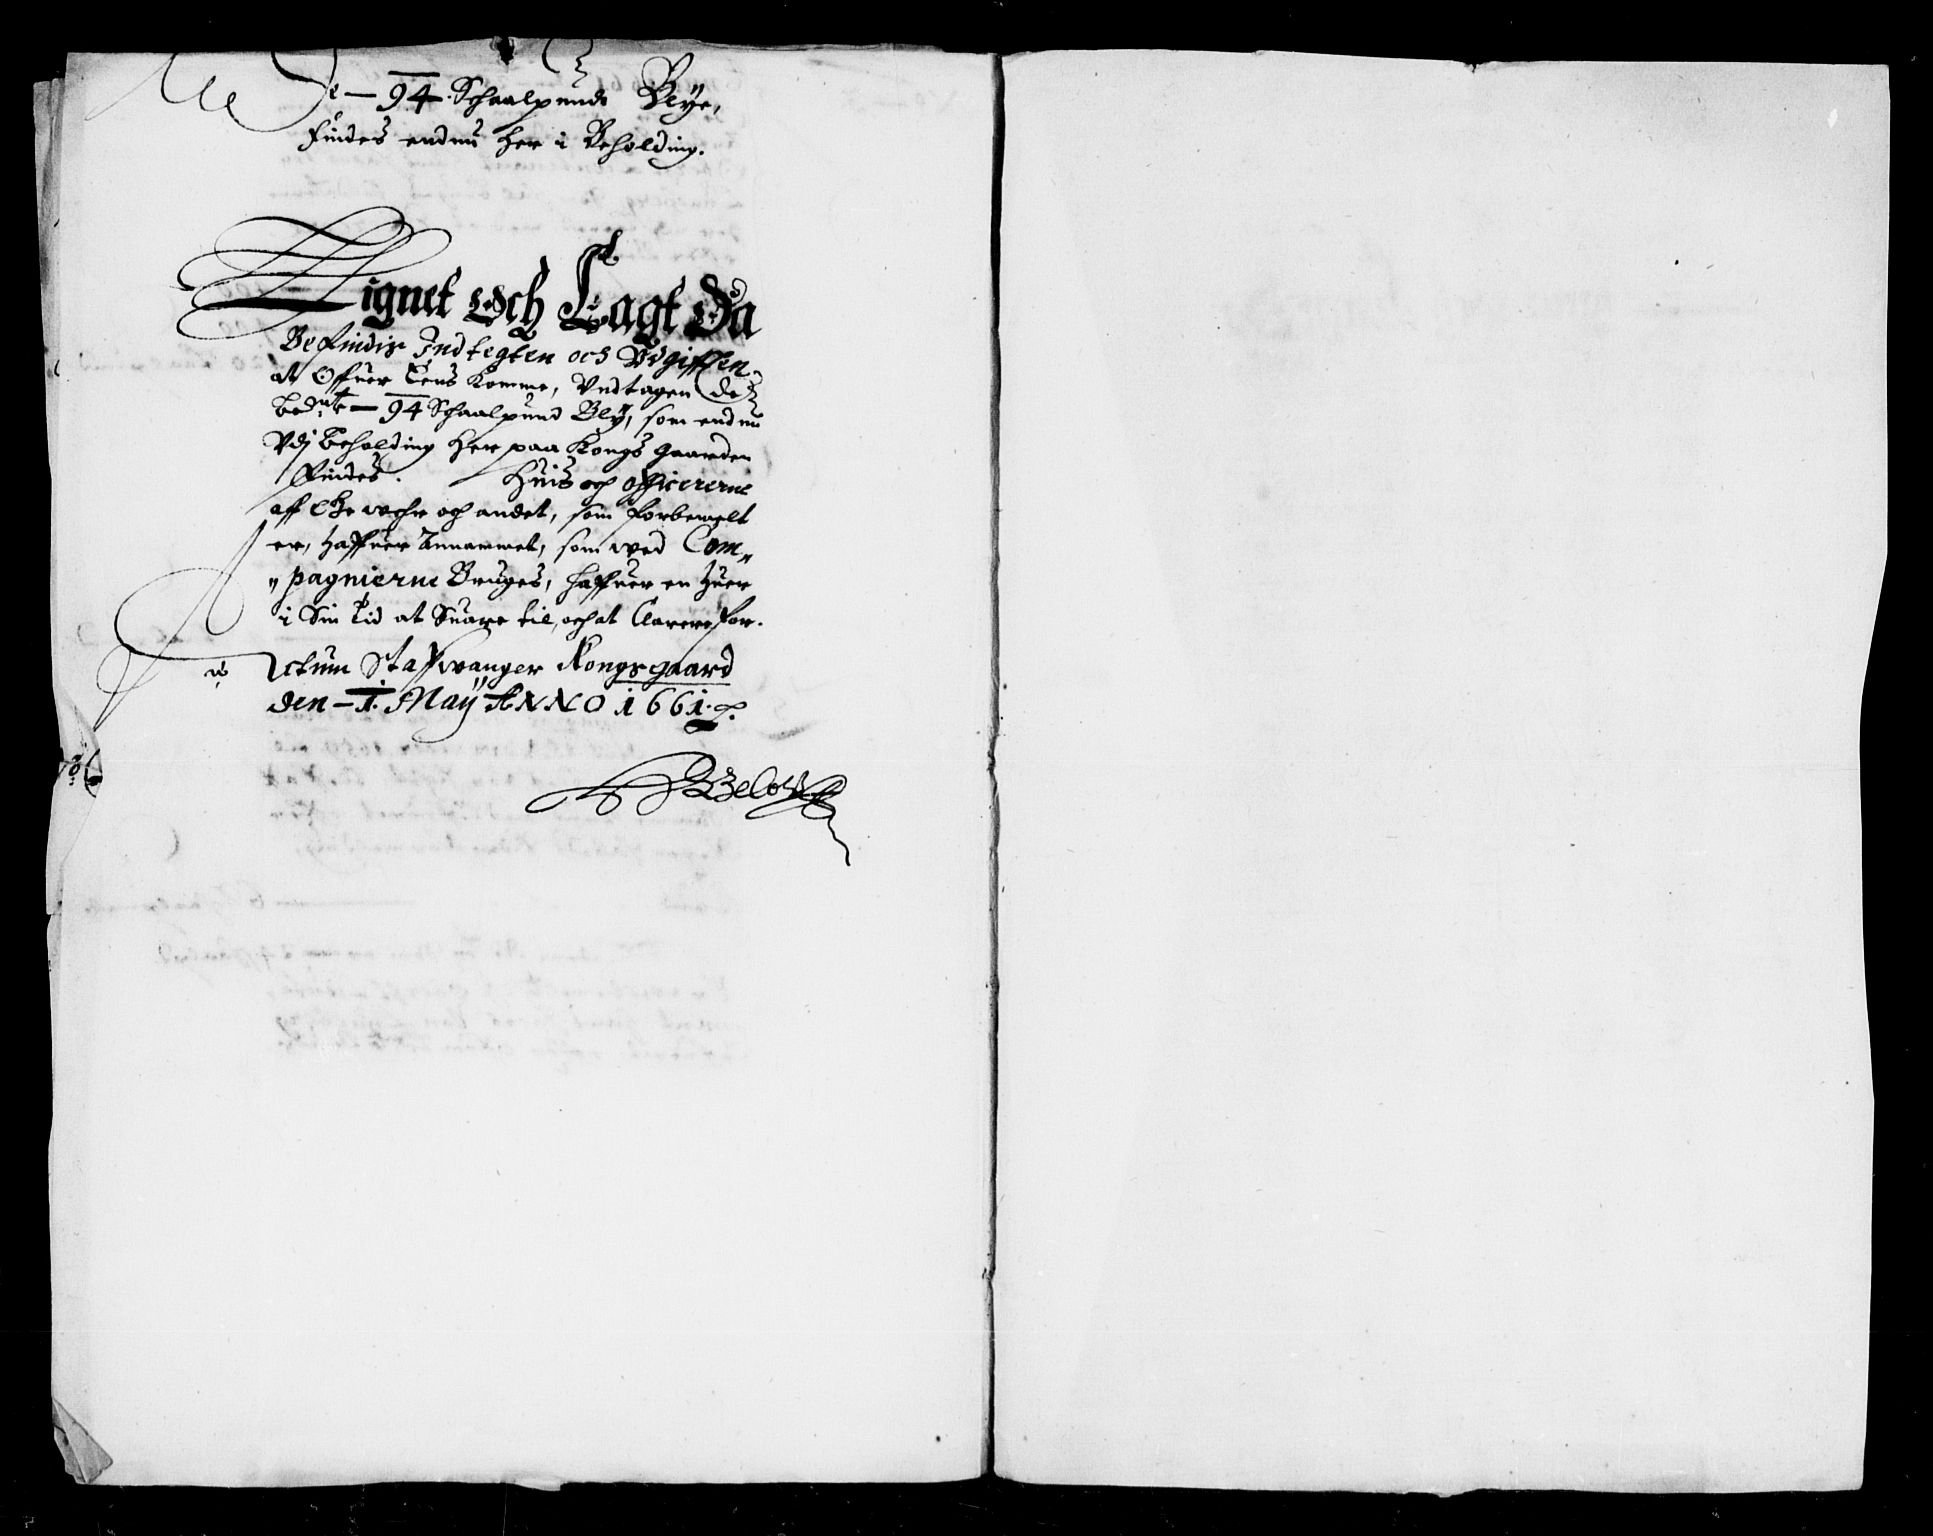 De – 94 Schaalpunds Blye,
findes endnu her i Beholding.
Lignet Och Lagt Da
Befindis Indtegten och Vdgifften
at Offuer Eens Komme, Vndtagen de
bedte – 94 Schaalpund Bly, som endnu
Vdj Beholding her paa Kongs gaarden
findes. Huis och officererne
aff gewehr och andet, som forbemelt
er, haffuer Annammet, som wed Com„
„pagnierne Bruges, haffuer en huer
i Sin tid at Suare til, och at Clarere for.
Actum Staffwanger Kongsgaard
den – 1. Maÿ ANNO 1661.
Below